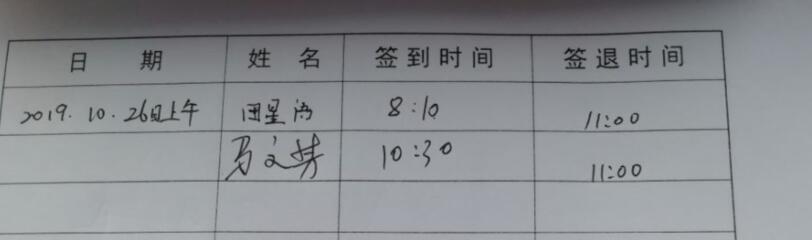 日 期 姓 名 签到时间 签退时间
2019.10.26日上午 田星 8:10 11:00
马文 10:30 11:00